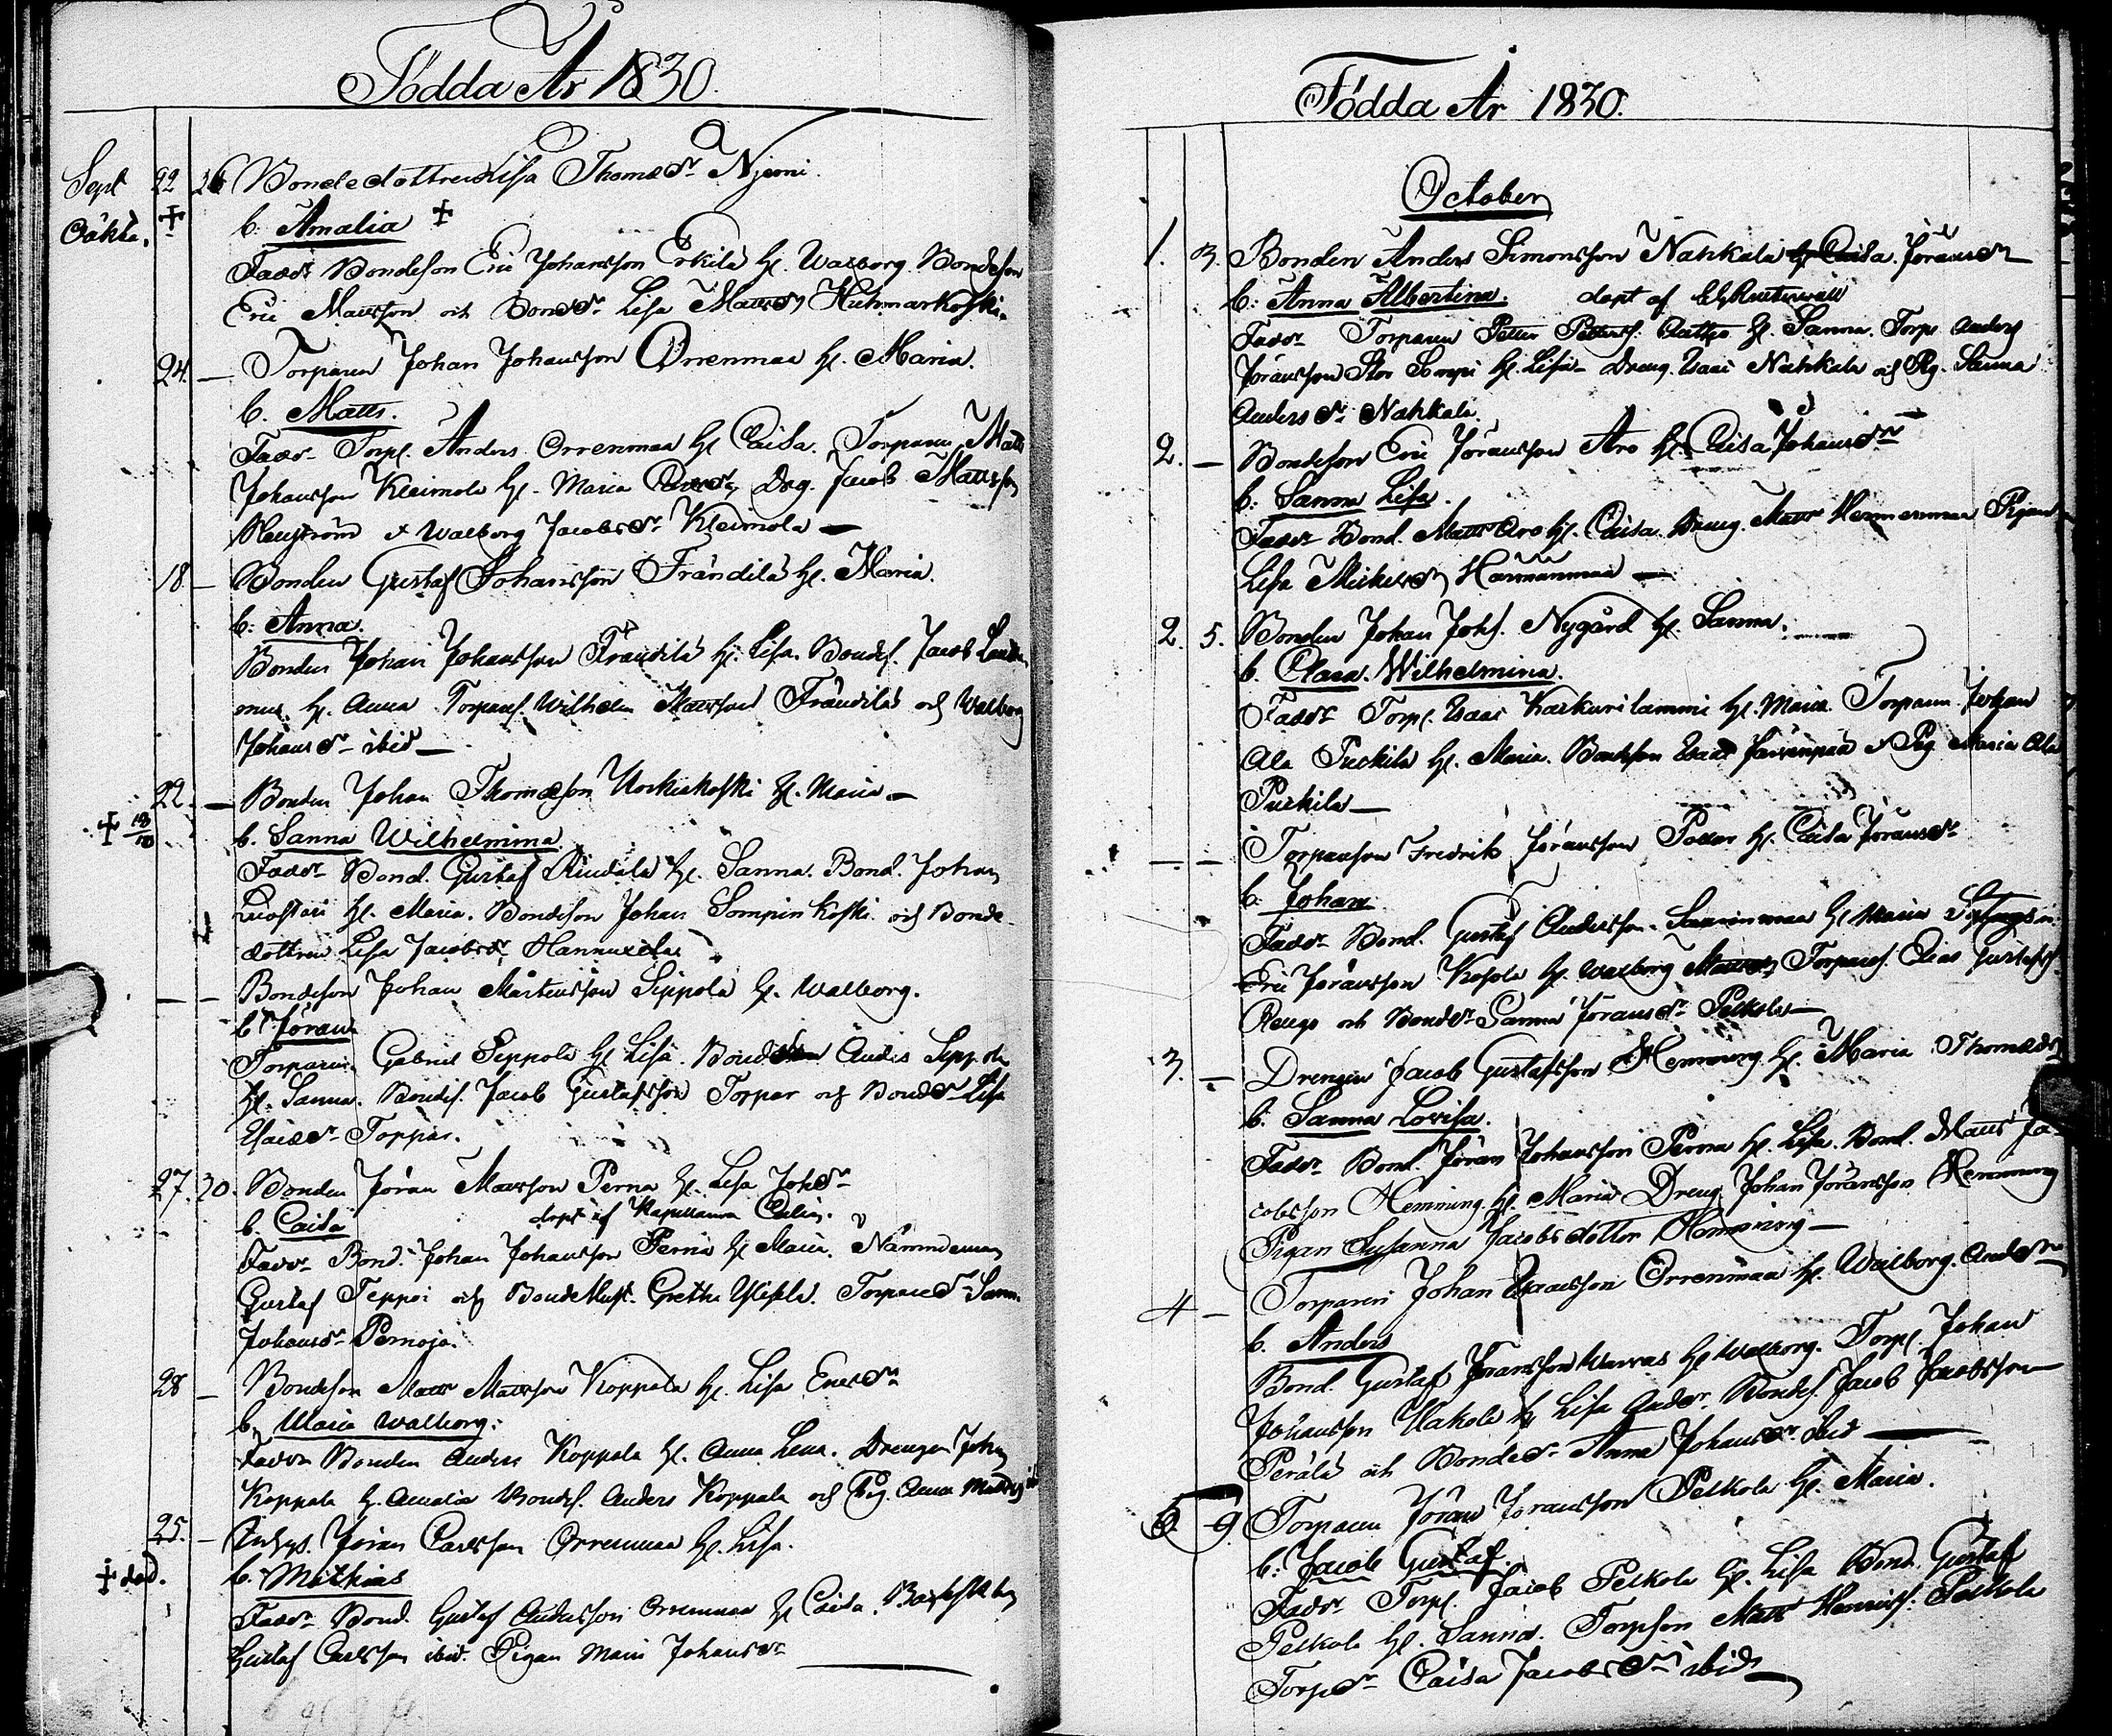 Födda År 1830.
Sept 22 26 Bondedottren Lisa Thomædr Njemi.
Oäkta. + b. Amalia +
Faddr Bondeson Eric Johansson Erkilä h. Walborg. Bondeson
Eric Mattsson och Bondedr Lisa Mattsdr Huhmarkoski.
24. — Torparen Johan Johansson Orrenmaa h. Maria.
b. Matts.
Faddr Torp. Anders Orrenmaa h. Caisa. Torparen Matts
Johansson Kleimola h. Maria Drg. Jacob Mattsson
Walborg Jacobsdr Kleimola —
18 — Bonden Gustaf Johansson Frändilä h. Maria.
b: Anna.
Bonden Johan Johansson Frändilä h. Lisa. Bondes. Jacob
h. Anna Torpares. Wilhelm Mattsson Frändilä och Walborg
Johansdr ibid —
22. — Bonden Johan Thomæson h. Maria —
+ 13/10 b. Sanna Wilhelmina.
Faddr Bond. Gustaf Rindala h. Sanna. Bond. Johan
Luostari h. Maria. Bondeson Johan Sompinkoski och Bonde-
dottren Lisa Jacobsdr Hannuxela
— — Bondeson Johan Mårtensson Seppola h. Walborg.
b. Jöran
Torparen Gabriel Seppola h. Lisa. Anders Seppola
h. Sanna. Bondes. Jacob Gustafsson Toppar och Bondedr Lisa
Esaiædr Toppar.
27. 30. Bonden Jöran Mattsson Perna h. Lisa Johsdr
b. Caisa döpt af Kapellanen
Faddr Bond. Johan Johansson Perna h. Maria. Nämndeman
Gustaf Teppoi och Bondehust. Gretha Torparedr Sanna
Johansdr Pernaja.
28 — Bondeson Matts Mattsson Koppala h. Lisa Ericsdr
b. Maria Walborg.
Faddr Bonden Anders Koppala h. Anna Lena. Drengen Johan
Koppala h. Amalia Bondes. Anders Koppala och Pig. Anna
25. — Inhys. Jöran Carlsson Orrenmaa h. Lisa.
+ död. b. Mathias
Faddr Bond. Gustaf Andersson Orrenmaa h. Caisa.
Gustaf Carlsson ibid. Pigan Maria Johansdr —
Födda År 1830.
October
1. 3. Bonden Anders Simonsson Nahkala h. Caisa Jöransdr
b: Anna Albertina. döpt af
Faddr Torparen Petter Petters. h. Sanna. Torp. Anders
Jöransson Stor Sompi h. Lisa — Dreng. Isaac Nahkala och Pig. Sanna
Andersdr Nahkala
2. — Bondeson Eric Jöransson Aro h. Caisa Johansdr
b: Sanna Lisa.
Faddr Bond. Matts Aro h. Caisa. Dreng. Matts Pigan
Lisa Mickelsdr Härmänmaa —
2. 5. Bonden Johan Johs. Nygård h. Sanna.
b. Clara Wilhelmina.
Faddr Torp. Isaac Karkunlammi h. Maria. Torparen Johan
Ala Purkila h. Maria. Bondeson Isaac Järvenpää o Pig. Maria Ala
Purkila —
— — Torpareson Fredrik Jöransson h. Caisa Jöransdr
b. Johan
Faddr Bond. Gustaf Andersson Saarenmaa h. Maria
Eric Jöransson Kosola h. Walborg Mattsdr Torpares. Elias Gustafs.
Rengo och Bondedr Sanna Jöransdr Pelkola —
3. — Drengen Jacob Gustafsson Hemming h. Maria Thomædr
b. Sanna Lovisa.
Faddr Bond. Jöran Johansson Perna h. Lisa. Bond. Matts Ja-
cobsson Hemming h. Maria Dreng Johan Jöransson Hemming
Pigan Susanna Jacobsdotter Hemming —
4 — Torparen Johan Isaacsson Orrenmaa h. Walborg Andersdr
b. Anders
Bond. Gustaf Jöransson Warras h. Walborg. Torp. Johan
Johansson Ulakola h. Lisa Andersdr. Bondes. Jacob Jacobsson
Perälä och Bondedr Anna Johansdr ibid —
6. 9. Torparen Jöran Jöransson Pelkola h. Maria.
b: Jacob Gustaf.
Faddr Torp. Jacob Pelkola h. Lisa Bond. Gustaf
Pelkola h. Sanna. Torpson Matts Henrics. Pelkola
Torpdr Caisa Jacobsdr ibid